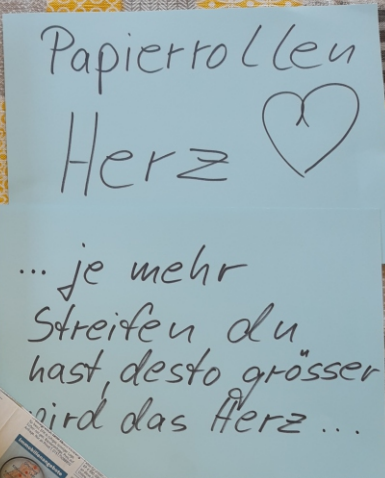 Papierrollen
Herz
... je mehr
Streifen du
hast, desto grösser
wird das Herz...